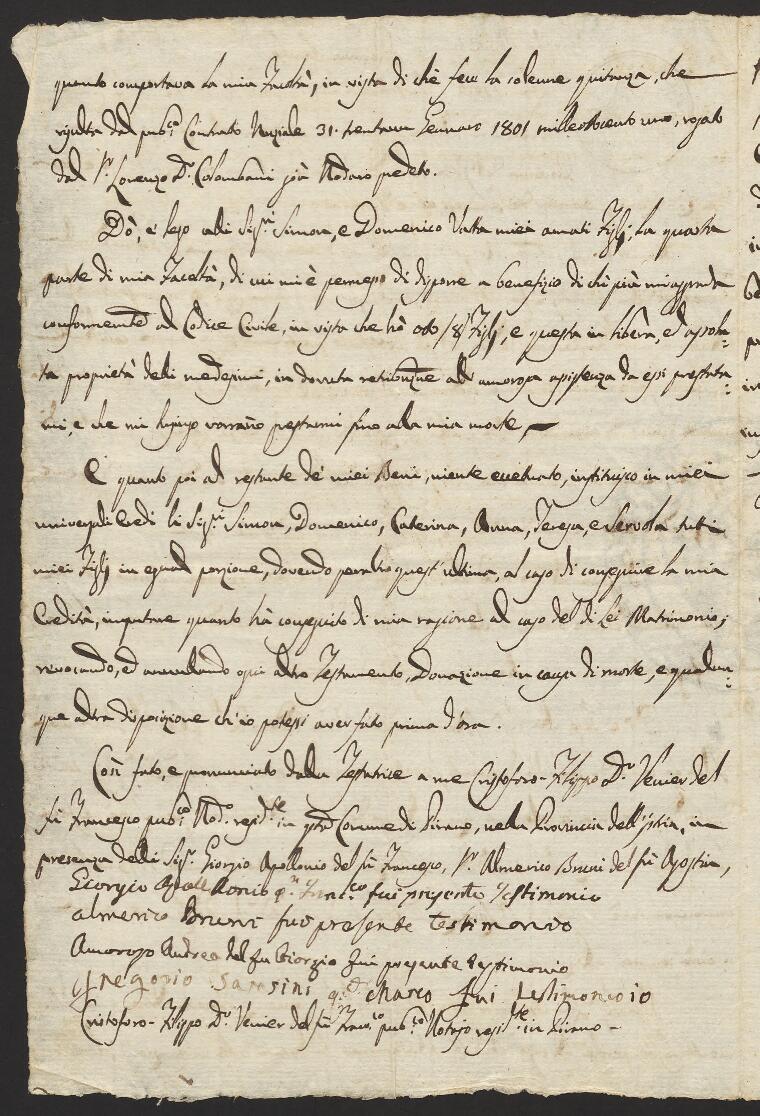 quanto comportava la mia Facoltà, in vista di chè feci la solenne quitanza, che
risulta dal pub:co Contrato Nuziale 31. trentaun Gennaro 1801 milleottocento uno, rogato
dal Sr. Lorenzo Dr. Colombani già Nodaro predeto.
Dò, e lego alli Sigri Simon, e Domenico Vatta miei amati Figlj, la quarta
parte di mia Facoltà, di cui mi è permesso di disporre a benefizio di chi più mi aggrada
conformemte al Codice Civile, in vista che hò oto /8/ Figlj, e questa in libera, ed assolu=
ta proprietà delli medesimi, in dovuta retribuzne all' amorosa assistenza da essi prestata=
mi, e che mi lusingo vorrano prestarmi fino alla mia morte,
E quanto poi al restante de' miei Beni, niente eccetuato, instituisco in miei
universali Eredi li Sigri Simon, Domenico, Caterina, Anna, Teresa, e Servola tutti
miei Figlj in egual porzione, dovendo peraltro quest' ultima, al caso di conseguire la mia
Eredità, imputare quanto hà conseguito di mia ragione al caso del di Lei Matrimonio;
revocando, ed annullando ogni altro Testamento, Donazione in causa di morte, e qualun=
que altra disposizione ch'io potessi aver fato prima d'ora.
Così fato, e pronunciato dalla Testatrice a me Cristoforo-Filippo Dr. Venier del
fù Francesco pub:co Nodo residte in questa Comune di Pirano, nella Provincia dell'Istria, in
presenza delli Sigri Giorgio Apollonio del fù Francesco, Sr. Almerico Bruni del fù Agostin,
Giorgio Apollonio qm Franco fui presente Testimonio
almerico Bruni fui presente testimonio
Amoroso Andrea del fu Giorgio fui presente testimonio
gregorio Sansini qm Marco fui testimoncoio
Cristoforo-Filippo Dr. Venier del fù Franco pub:co Notajo residte in Pirano -